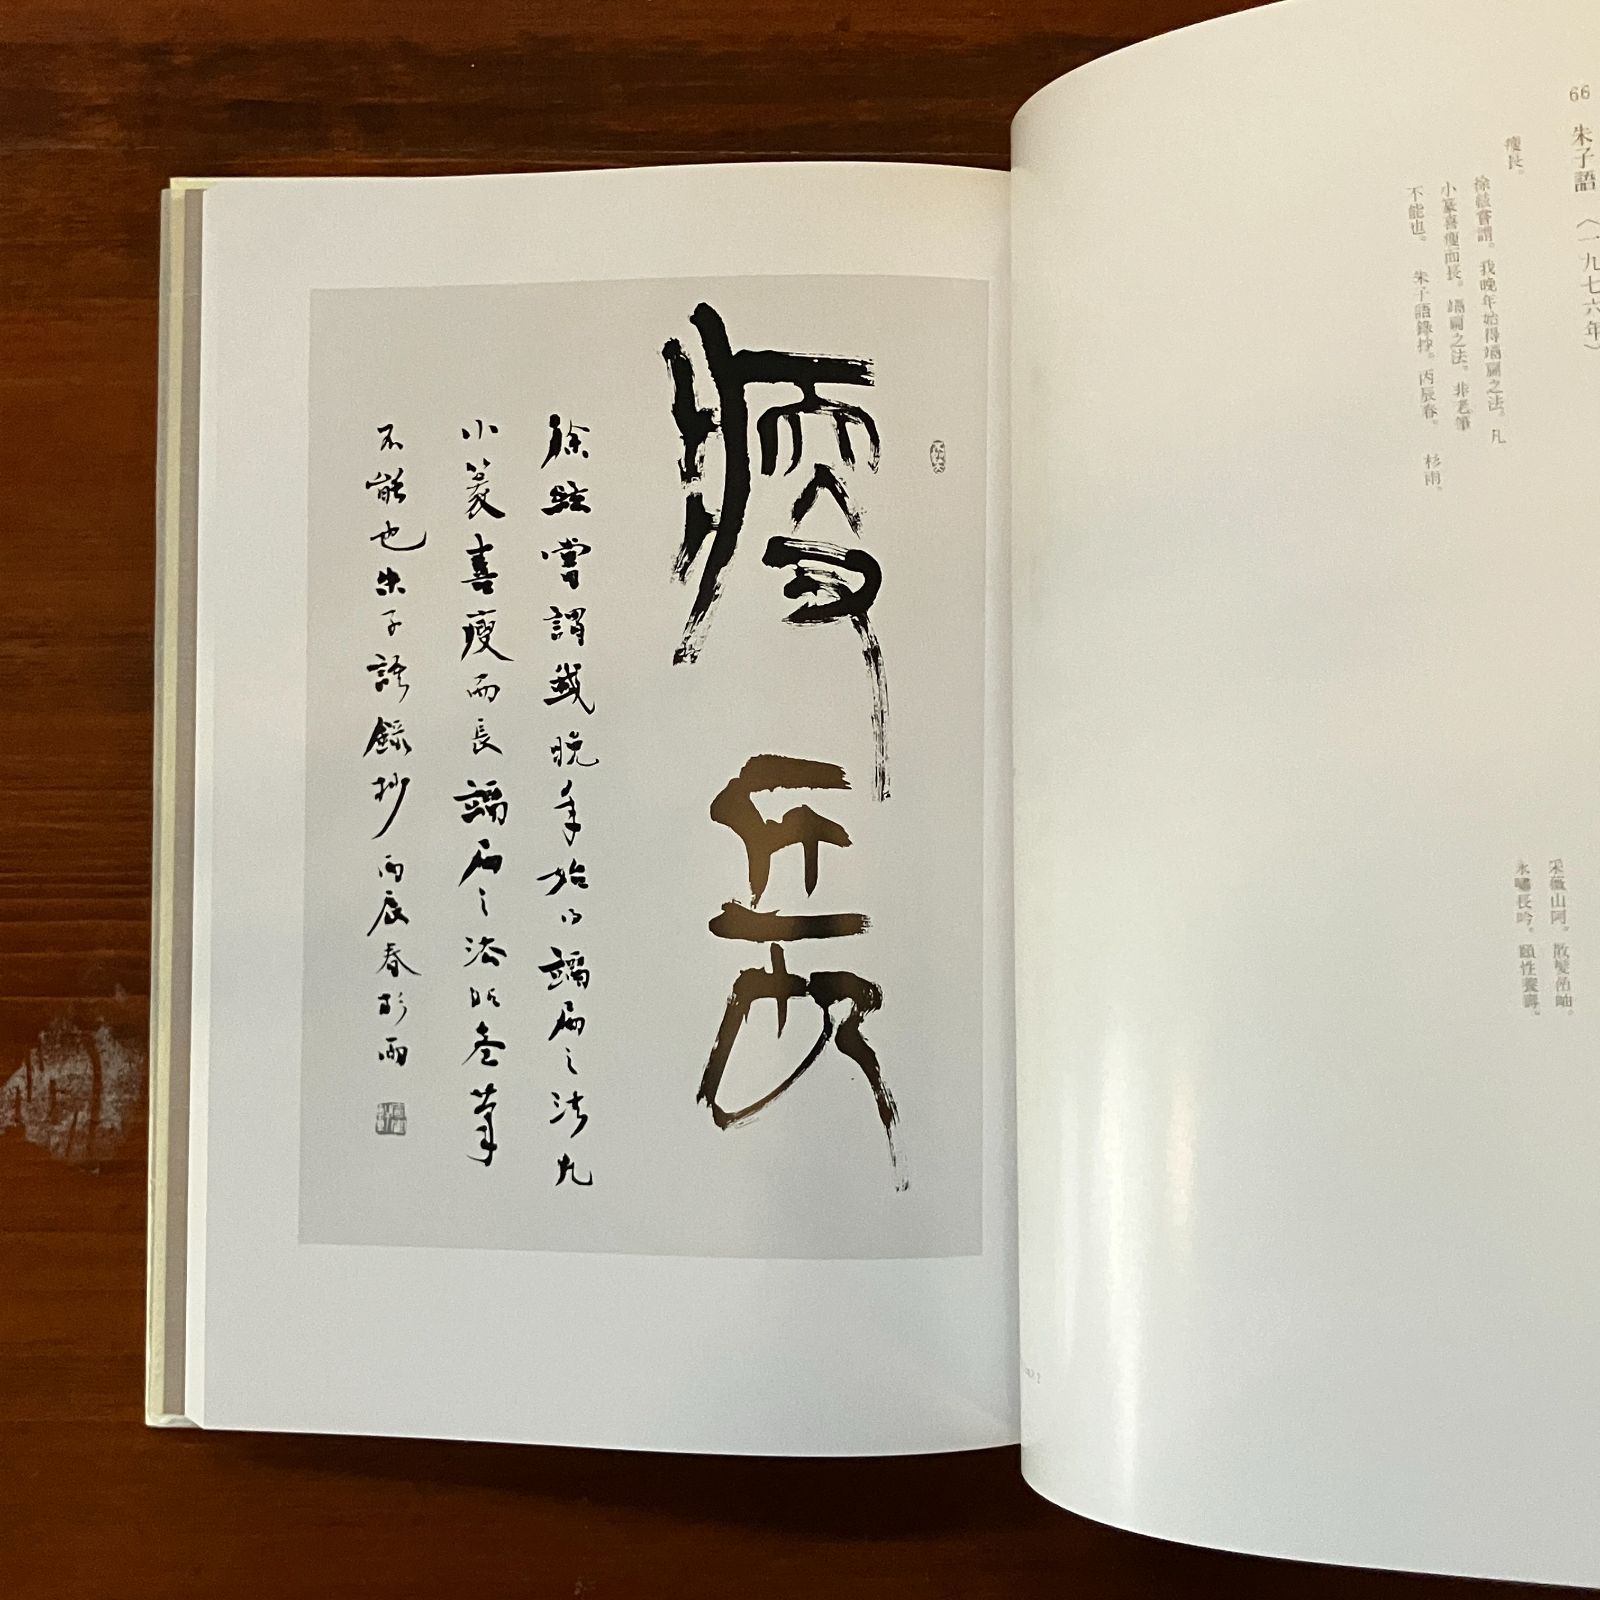 66 朱子語 〈一九七六年〉
瘦長。
徐鉉嘗謂。我晚年始得竵匾之法。凡
小篆喜瘦而長。竵匾之法。非老筆
不能也。 朱子語錄抄。丙辰春。 杉雨。
采薇山阿。散髪岩岫。
永嘯長吟。頤性養壽。
瘦長
徐鉉嘗謂我晚年始得竵匾之法凡
小篆喜瘦而長竵匾之法非老筆
不能也朱子語錄抄丙辰春杉雨